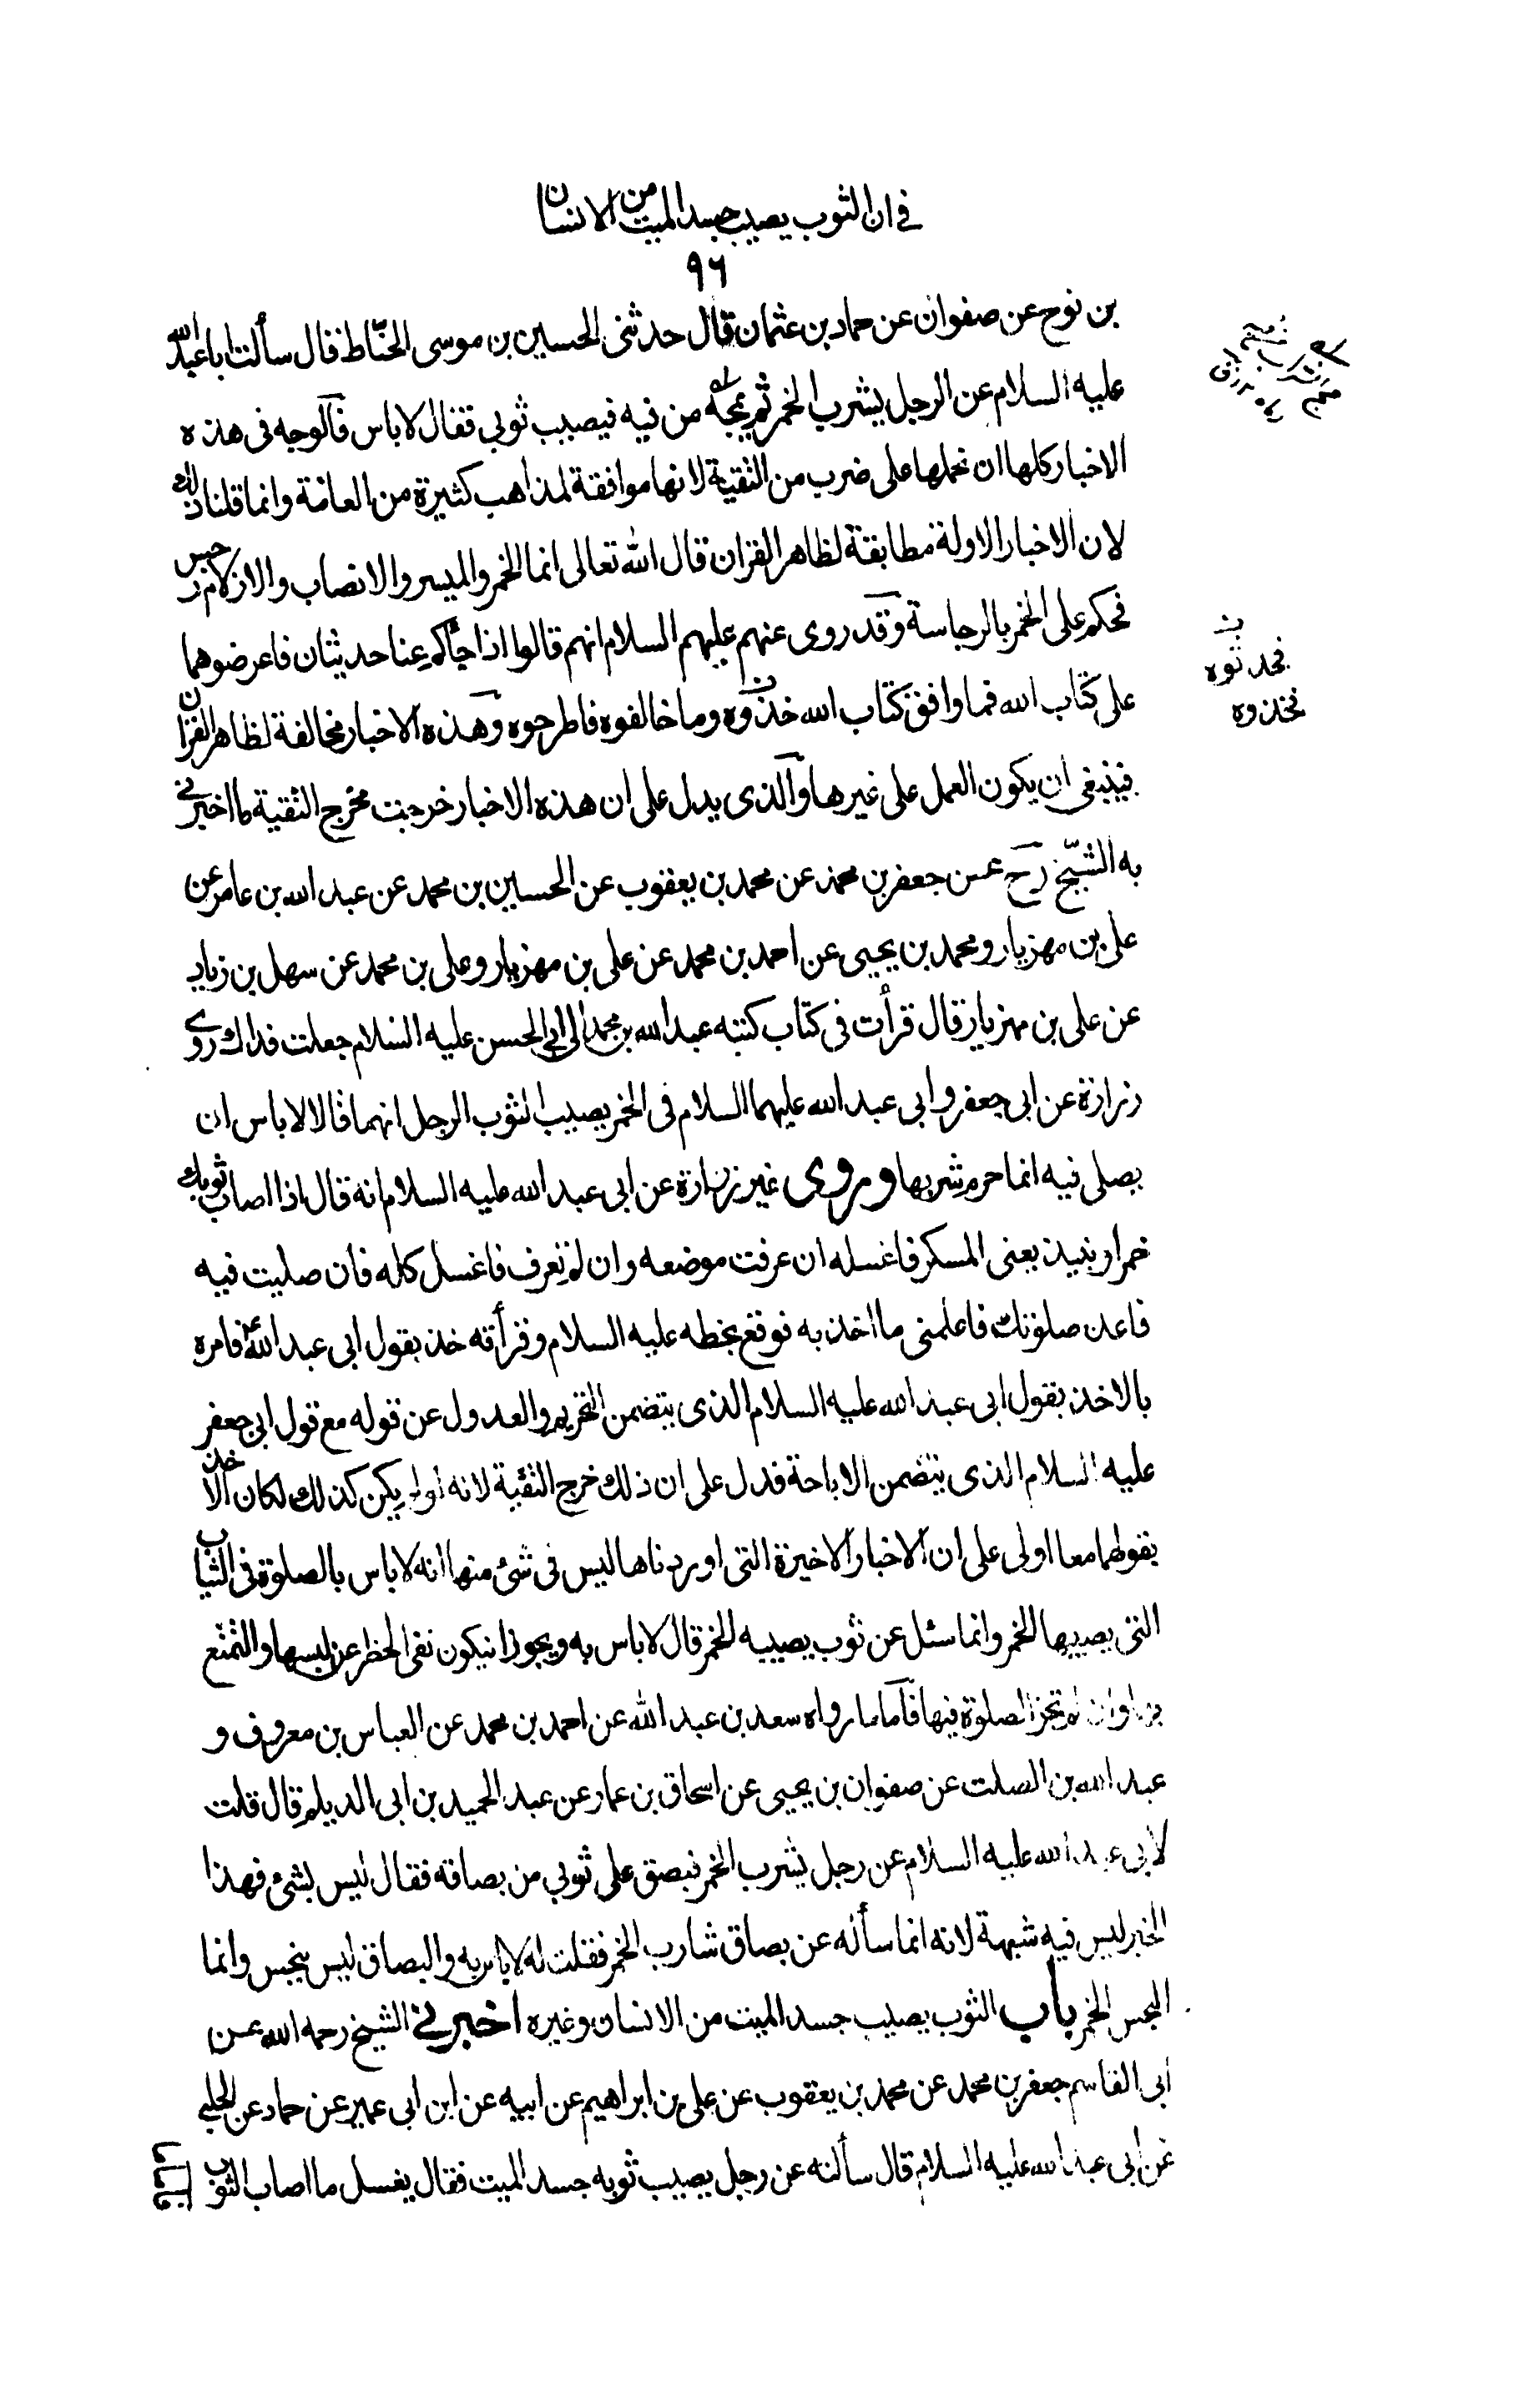 في ان الثوب يصيب جسد الميت من الانسان
٩٦
بن نوح عن صفوان عن حماد بن عثمان قال حدثنى الحسين بن موسى الحنّاط قال سألت ابا عبد الله
عليه السلام عن الرجل يشرب الخمر ثم يمجه من فيه فيصيب ثوبي فقال لا باس فالوجه فى هذه
الاخبار كلها ان نحملها على ضرب من التقية لانها موافقة لمذاهب كثيرة من العامة وانما قلنا ذلك
لان الاخبار الاولة مطابقة لظاهر القران قال الله تعالى انما الخمر والميسر والانصاب والازلام رجس
فحكم على الخمر بالرجاسة وقد روى عنهم عليهم السلام انهم قالوا اذا جأكم عنا حديثان فاعرضوهما
على كتاب الله فما وافق كتاب الله خذوه وما خالفوه فاطرحوه وهذه الاخبار مخالفة لظاهر القران
فينبغى ان يكون العمل على غيرها والذى يدل على ان هذه الاخبار خرجت مخرج التقية ما اخبرني
به الشيخ رح عن جعفر بن محمد عن محمد بن يعقوب عن الحسين بن محمد عن عبد الله بن عامر عن
على بن مهزيار ومحمد بن يحيى عن احمد بن محمد عن على بن مهزيار وعلى بن محمد عن سهل بن زياد
عن على بن مهزيار قال قرأت فى كتاب كتبه عبد الله بن محمد الى ابى الحسن عليه السلام جعلت فداك روى
زرارة عن ابى جعفر وابى عبد الله عليهما السلام فى الخمر يصيب الثوب الرجل انهما قالا لا باس ان
يصلى فيه انما حرم شربها وروى غير زرارة عن ابى عبد الله عليه السلام انه قال اذا اصاب ثوبك
خمر او نبيذ يعنى المسكر فاغسله ان عرفت موضعه وان لم تعرف فاغسل كله فان صليت فيه
فاعد صلوتك فاعلمنى ما اخذ به فوقع بخطه عليه السلام وقرأته خذ بقول ابى عبد الله ع فامره
بالاخذ بقول ابى عبد الله عليه السلام الذى يتضمن التحريم والعدول عن قوله مع قول ابى جعفر
عليه السلام الذى يتضمن الاباحة فدل على ان ذلك خرج التقية لانه لو لم يكن كذلك لكان الاخذ
بقولهما معا اولى على ان الاخبار الاخيرة التى اوردناها ليس فى شئ منها انه لا باس بالصلوة فى الثياب
التى يصيبها الخمر وانما سئل عن ثوب يصيبه الخمر قال لا باس به ويجوز ان يكون نفى الحظر عن لبسها والتمتع
بها وان لم تجز الصلوة فيها فاما ما رواه سعد بن عبد الله عن احمد بن محمد عن العباس بن معروف و
عبد الله بن الصلت عن صفوان بن يحيى عن اسحاق بن عمار عن عبد الحميد بن ابى الديلم قال قلت
لابى عبد الله عليه السلام عن رجل يشرب الخمر فبصق على ثوبي من بصاقه فقال ليس بشئ فهذا
الخبر ليس فيه شبهة لانه انما سأله عن بصاق شارب الخمر فقلت له لا باس به والبصاق ليس بنجس وانما
النجس الخمر باب الثوب يصيب جسد الميت من الانسان وغيره اخبرني الشيخ رحمه الله عن
ابى القاسم جعفر بن محمد عن محمد بن يعقوب عن على بن ابراهيم عن ابيه عن ابن ابى عمير عن حماد عن الحلبى
عن ابى عبد الله عليه السلام قال سألته عن رجل يصيب ثوبه جسد الميت فقال يغسل ما اصاب الثوب
فخذوه